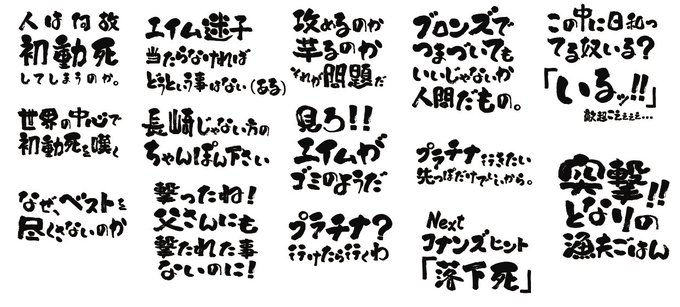 人は何故
初動死
してしまうのか。
世界の中心で
初動死を嘆く
なぜ、ベストを
尽くさないのか
エイム迷子
当たらなければ
どうという事はない(ある)
長崎じゃない方の
ちゃんぽん下さい
撃ったね!
父さんにも
撃たれた事
ないのに!
攻めるのか
芋るのか
それが問題だ
見ろ!!
エイムが
ゴミのようだ
プラチナ?
行けたら行くわ
ブロンズで
つまづいても
いいじゃないか
人間だもの。
プラチナ行きたい
先っぽだけでいいから。
Next
コナンズヒント
「落下死」
この中に日和っ
てる奴いる?
「いるッ!!」
敵超こぇぇぇぇ…
突撃!!
となりの
漁夫ごはん